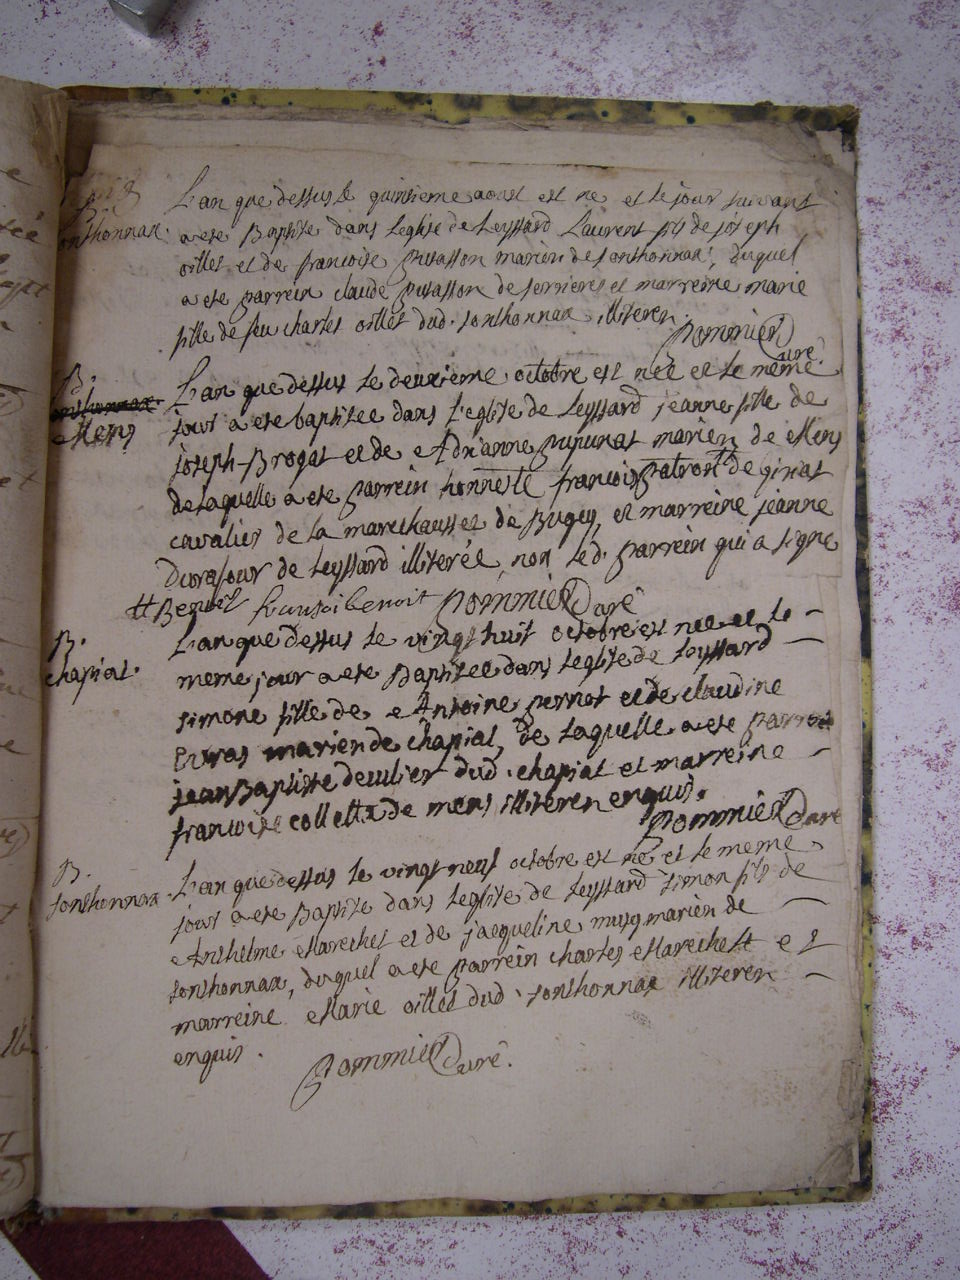 L'an que dessus le quinsieme aoust est né et le jour suivant
Sonthonnax a eté Baptisé dans l'eglise de Leyssard Laurent fils de joseph
oillet et de francoise puvasson mariér de Sonthonnax, duquel
a eté parrein claude puvasson de serrieres et marreine marie
fille de feu charles oillet dud. Sonthonnax illiterer.
pommier Curé
B.
L'an que dessus le deuxieme octobre est neé et le même
sonthonnax
Mens
jour a eté baptiseé dans l'eglise de Leyssard jeanne fille de
joseph Brogat et de Adrianne pupunat mariér de Mens
de laquelle a eté parrein honneste francois de Giriat
cavalier de la marechausseé de Bugey, et marreine jeanne
Durafour de Leyssard illitereé, non led. parrein qui a signé
Benoit pommier Curé
B.
L'an que dessus le vingt huit octobre est neé et le
chapiat.
meme jour a eté Baptiseé dans l'eglise de Leyssard
simone fille de Antoine pernot et de claudine
mariér de chapiat, de laquelle a eté parrein
jean Baptiste dud. chapiat et marreine
francoise de mens illiterer enquis.
pommier Curé
B.
L'an que dessus le vingt neuf octobre est né et le meme
Sonthonnax
jour a eté Baptisé dans l'eglise de Leyssard Simon fils de
Anthelme Marechet et de jacqueline mariér de
sonthonnax, duquel a eté parrein charles Marechet et
marreine Marie oillet dud. sonthonnax illiterer
enquis.
pommier Curé.